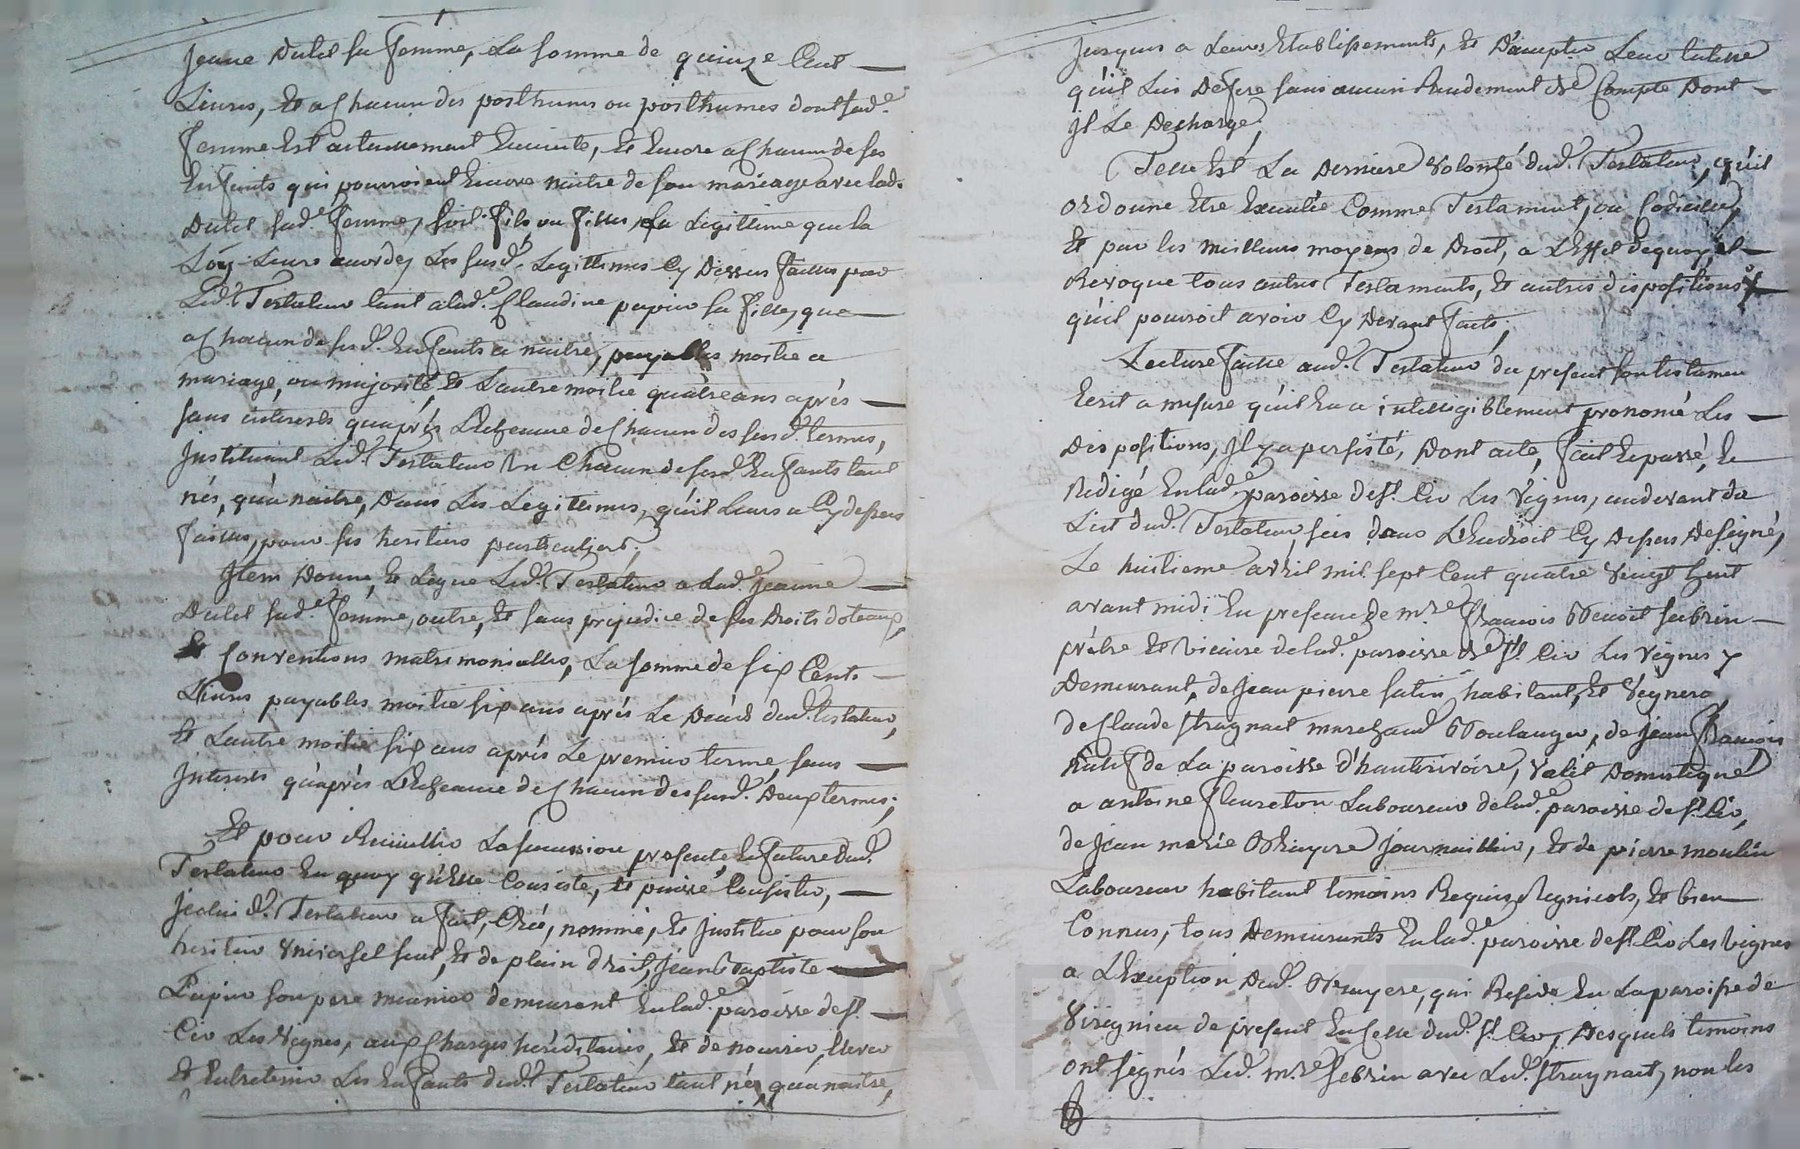 jeane Dutel sa femme, La somme de quinze Cent
Livres, Et a Chacun des posthumes ou posthumes dont sad.e
femme Est actuellement Enceinte, Et Encore a Chacun de ses
Enfants qui pourroient Encore naitre de son mariage avec lad.
Dutel sad.e femme, soit fils ou filles, La Legittime que la
Loy Leurs accorde, Les susd. Legittimes Cy Dessus faittes par
Led.t Testateur tant a lad.e Claudine papier sa fille, que
a Chacun de sesd. Enfants a naitre, payables moitié a
mariage, ou majorité, Et L'autre moitié quatre ans après
sans interets qu'après L'Echeance de Chacun des susd. termes,
Instituant Led.t Testateur Un Chacun de sesd. Enfants tant
nés, qu'a naitre, Dans Les Legittimes, qu'il Leurs a Cy dessus
faittes, pour ses heritiers particuliers;
Item Donne, Et Legue Led.t Testateur a Lad.e Jeanne
Dutel sad.e femme, outre, Et sans prejudice de ses Droits dotaux,
Et Conventions matrimonialles, La somme de six Cent
Livres payables moitié six ans après Le Décès dud. testateur,
Et L'autre moitié six ans après Le premier terme, sans
Interets qu'après L'Echeance de Chacun des susd. Deux termes;
Et pour Recueillir La succession presente, Et future Dud.
Testateur En quoy qu'Elle Consiste, Et puisse Consister,
Jcelui d.t Testateur a fait, Créé, nommé, Et Institué pour son
heritier Universel seul, Et de plain droit, Jean Baptiste
Papier son pere meunier demeurant En lad.e paroisse de s.t
Cir Les Vignes, aux Charges héréditaires, Et de nourrir, Elever
Et Entretenir Les Enfants dud.t Testateur tant nés, qu'a naitre,
jusques a Leurs Etablissements, Et D'accepter Leur tutelle
qu'il Lui Defere sans aucun Rendement de Compte Dont
Jl Le Decharge,
Telle Est La Derniere Volonté dud.t Testateur, qu'il
ordonne Etre Executée Comme Testament, ou Codicille,
Et par les meilleurs moyens de Droit, a L'Effet de quoy, il
Revoque tous autres Testaments, Et autres dispositions
qu'il pourroit avoir Cy Devant faits,
Lecture faitte aud.t Testateur du present son testament
Ecrit a mesure qu'il En a intellegiblement prononcé Les
Dispositions, Jl y a persisté, Dont acte, fait Et passé, Et
Redigé En lad.e paroisse de s.t Cir Les Vignes, au devant du
Lict dud.t Testateur sis dans L'Endroit Cy Dessus Designé,
Le huitieme avril mil sept Cent quatre Vingt huit
avant midi En presence de m.re François Benoit sebrin
prêtre Et Vicaire de lad.e paroisse de s.t Cir Les Vignes y
Demeurant, de Jean pierre satin habitant, Et Vigneron
de Claude stragnact marchand Boulanger, de Jean François
Natif de La paroisse d'hauterivoire, Valet Domestique
a antoine fleureton Laboureur de lad.e paroisse de s.t Cir,
de Jean marie Bruyere Journaillier, Et de pierre moulin
Laboureur habitant temoins Requis, Regnicols, Et bien
Connus, tous Demeurants En lad.e paroisse de s.t Cir Les Vignes
a L'Exception Dud. Bruyere, qui Reside En La paroisse de
Virignieu de present En Celle dud.t s.t Cir, Desquels temoins
ont signés Led. m.re sebrin avec Led. stragnact, non les